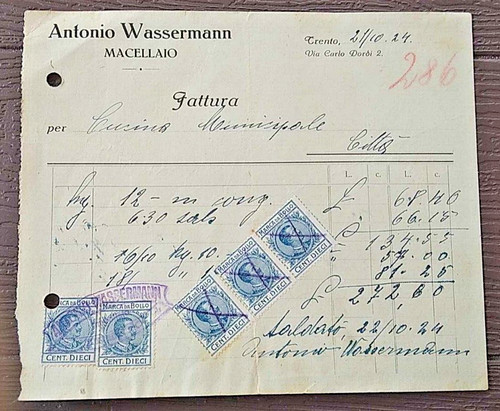 Antonio Wassermann
MACELLAIO
Trento, 21/10.24.
Via Carlo Dordi 2.
286
Fattura
per Cucina Municipale
Città
L. c. L. c.
kg 12 - m cong. £ 68.40
6.30 66.15
134.55
16/10 kg. 10. 57.00
181 " 81.25
£ 272,80
WASSERMANN
MARCA DA BOLLO
CENT. DIECI
MARCA DA BOLLO
CENT. DIECI
MARCA DA BOLLO
CENT. DIECI
MARCA DA BOLLO
CENT. DIECI
MARCA DA BOLLO
CENT. DIECI
Saldato, 22/10.24
Antonio Wassermann